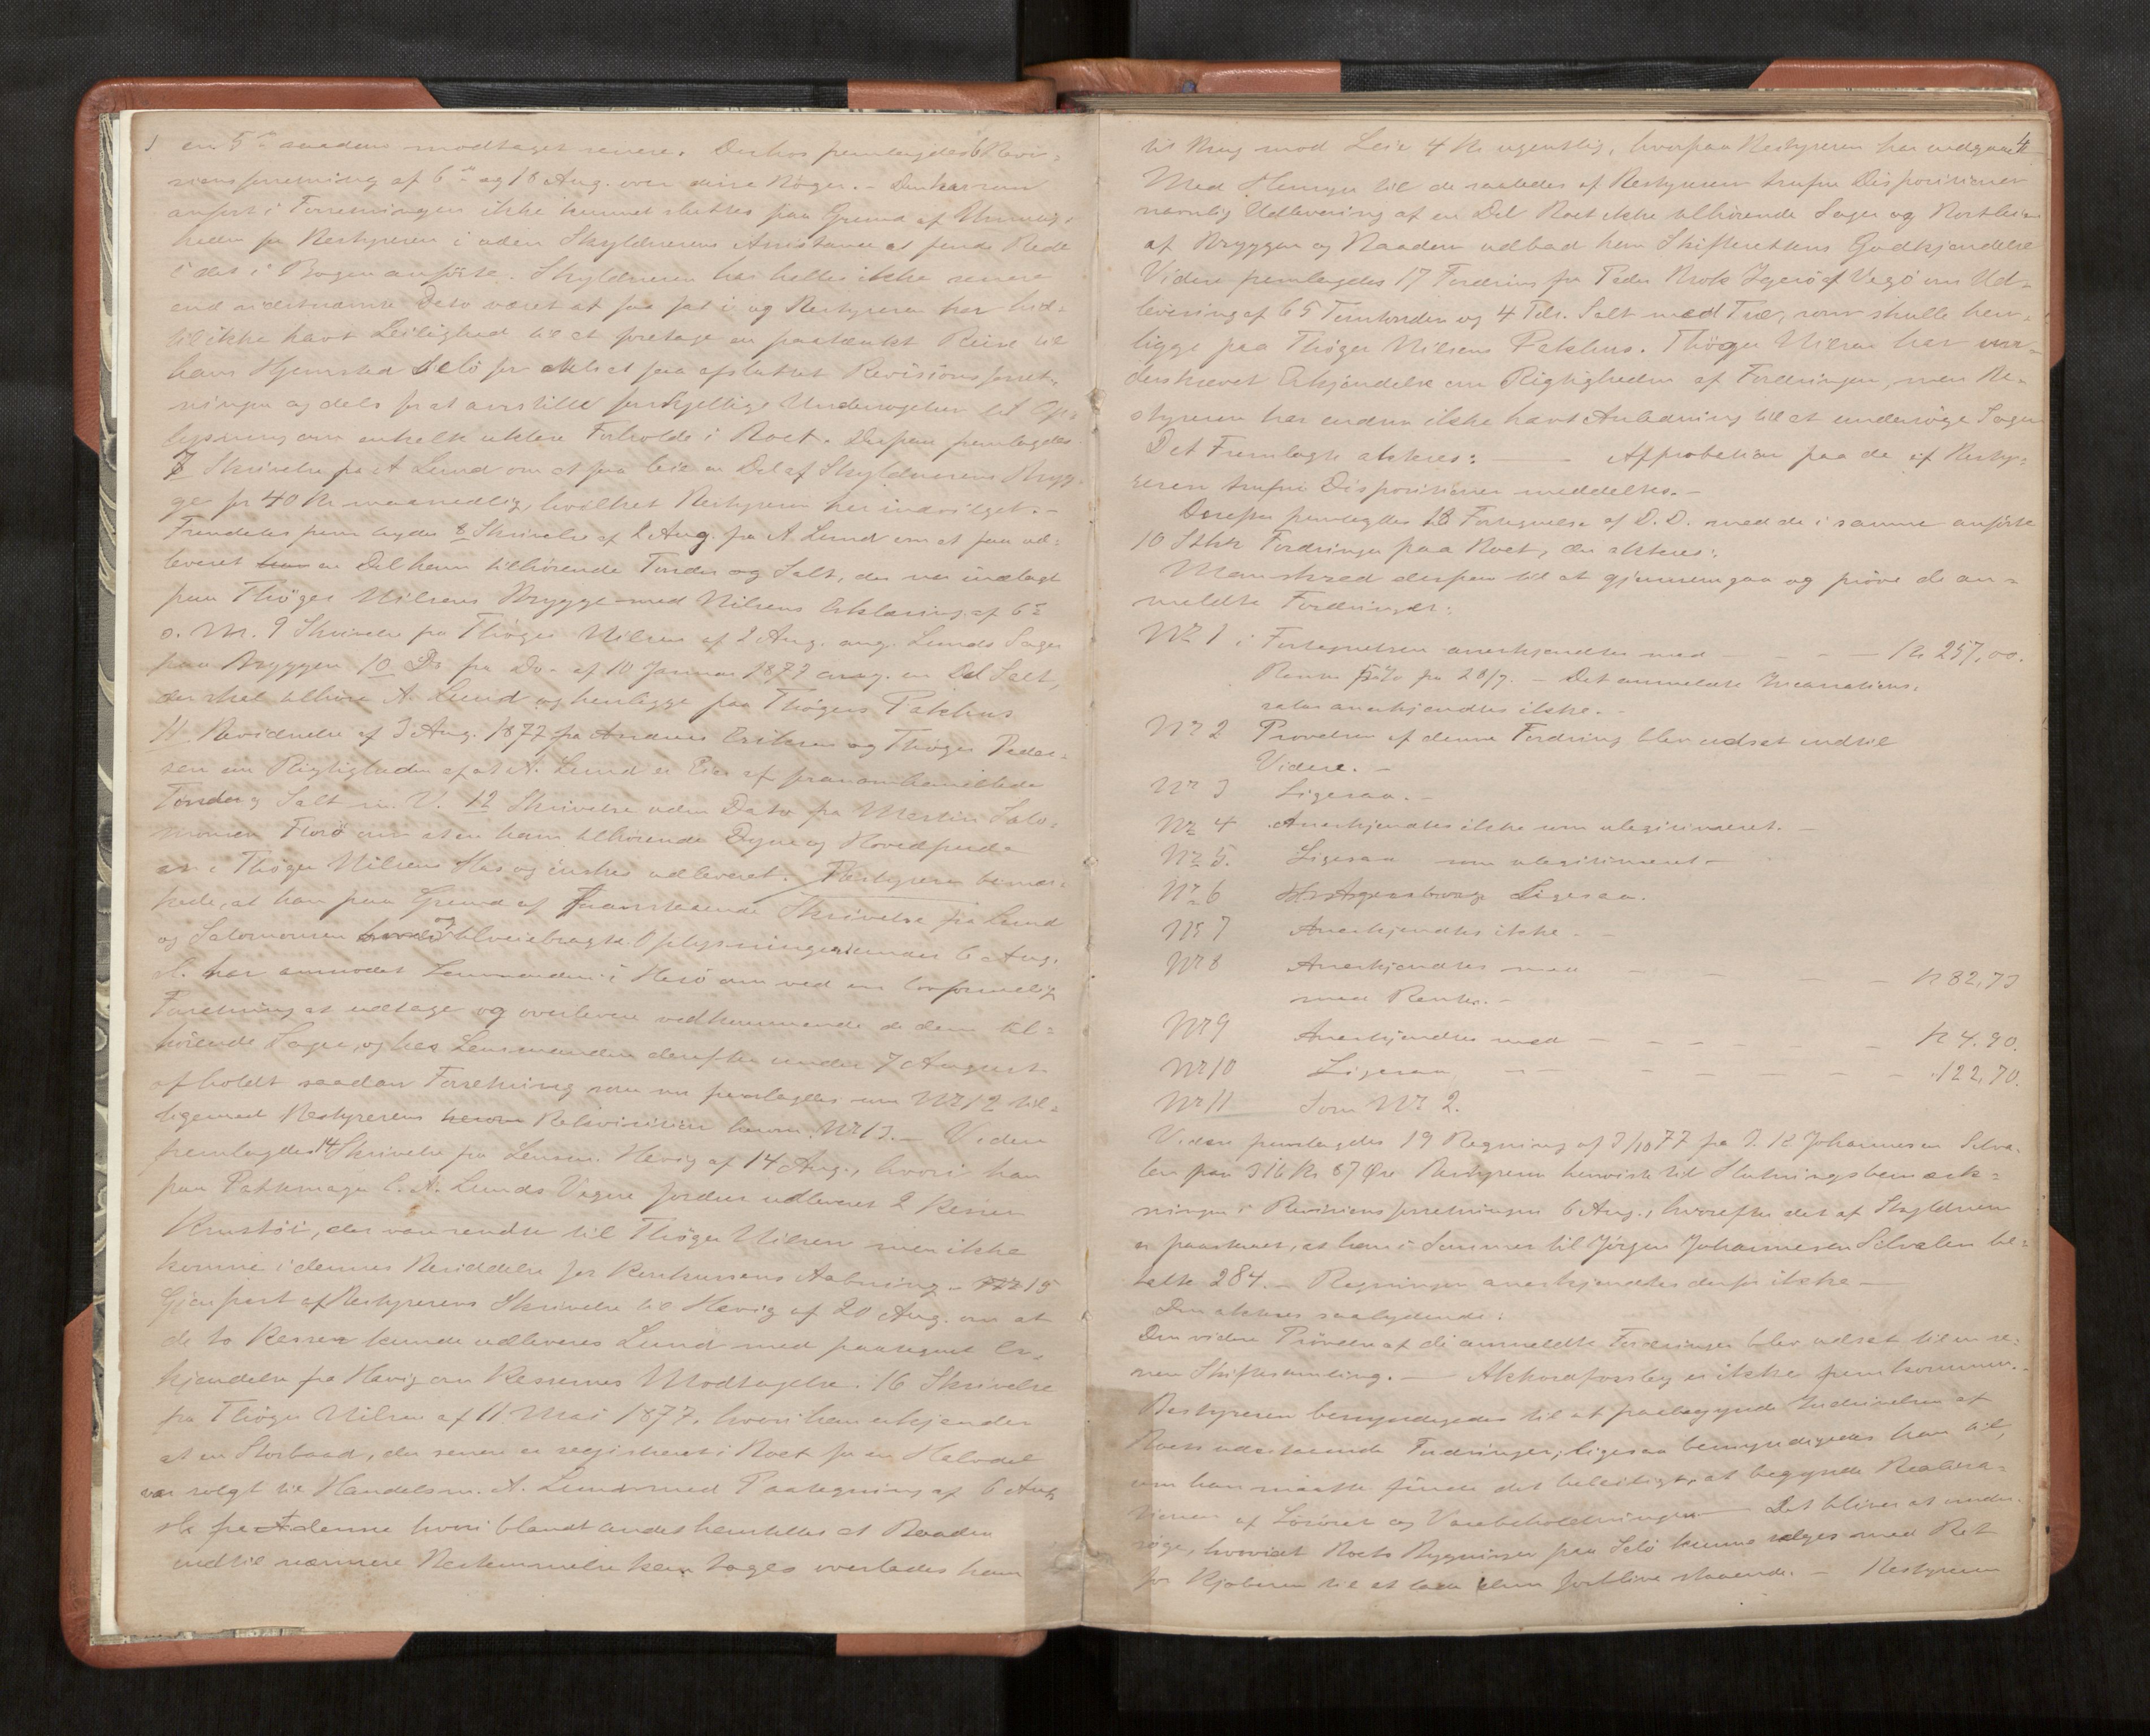 en 5te saadan modtaget senere. Derhos fremlagdes 6 Revi-
sionsforretning af 6te og 18 Aug. over disse Bøger. - Den har som
anført i Forretningen ikke kunnet sluttes paa Grund af Umulig-
heden for Bestyreren i uden Skyldnerens Assistance at finde Rede
i det i Bogen anførte. Skyldneren har heller ikke senere
end sidstnævnte Dato været at faa fat i og Bestyreren har hid-
til ikke havt Leilighed til at foretage en paatænkt Reise til
hans Hjemsted Selø for dels at faa afsluttet Revisionsforret-
ningen og dels for at anstille forskjellige Undersøgelser til Op-
lysning om enkelte uklare Forholde i Boet. Derpaa fremlagdes
7 Skrivelse fra A Lund om at faa leie en Del af Skyldnerens Bryg-
ge for 40 Kr maanedlig, hvilket Bestyreren har indvilget. -
Fremdeles fremlagdes 8 Skrivelse af 2 Aug. fra A. Lund om at faa ud-
leveret en Del ham tilhørende Tønder og Salt, der var indlagt
paa Thøger Nilsens Brygge med Nilsens Erklæring af 6te
s. M. 9 Skrivelse fra Thøger Nilsen af 2 Aug. ang. Lunds Sager
paa Bryggen 10 Do fra Do- af 10 Januar 1877 ang. en Del Salt,
der skal tilhøre A. Lund og henligge paa Thøgers Pakhus
11 Bevidnelse af 3 Aug. 1877 fra Andreas Eriksen og Thøger Peder-
sen om Rigtigheden af at A. Lund er Eier af
Tønder og Salt m. V. 12 Skrivelse uden Dato fra Martin Salo-
monsen Florø om at en ham tilhørende Dyne og Hovedpude
er i Thøger Nilsens Hus og ønskes udleveret. Bestyreren bemær-
kede, at han paa Grund af foranstaaende Skrivelse fra Lund
og Salomonsen tilveiebragte Oplysninger under 6 Aug.
d. har anmodet Lensmanden i Herø om ved en lovformelig
Forretning at udtage og overlevere vedkommende de dem til-
hørende Sager, og has Lensmanden derefter under 7 August
afholdt saadan Forretning som nu fremlagdes som No 12 til-
ligemed Bestyrerens Rekvisition herom No 13. - Videre
fremlagdes 14 Skrivelse fra Lensm. Hevig af 14 Aug., hvori han
paa Pakmager C. A. Lunds Vegne fordrer udleveret 2 Kasser
, der var sendte til Thøger Nilsen men ikke
komne i dennes Besiddelse før Konkursens Aabning - 15
Gjenpart af Bestyrerens Skrivelse til Hevig af 20 Aug. om at
de to Kasser kunde udleveres Lund med paategnet Er-
kjendelse fra Hevig om Kassernes Modtagelse. 16 Skrivelse
fra Thøger Nilsen af 11 Mai 1877, hvori han erkjender
at en Storbaad, der senere er registreret i Boet for en Halvdel
var solgt til Handelsm. A. Lund med Paategning af 6 Aug
fra denne hvori blandt andet henstilles at Baaden
indtil nærmere Bestemmelse kan tages overlades ham
4
til Brug mod Leie 4 Kr ugentlig, hvorpaa Bestyreren har indgaaet
Med Hensyn til de saaledes af Bestyreren trufne Dispositioner
navnlig Udlevering af en Del Boet ikke tilhørende Sager og Bortleie
af Bryggen og Baaden udbad han Skifterettens Godkjendelse
Videre fremlagdes 17 Fordring fra Peder Brok af Vegø om Ud-
levering af 65 Tomtønder og 4 Tdr. Salt med Træ, som skulle hen-
ligge paa Thøger Nilsens Pakhus. Thøger Nilsen har un-
derskrevet Erkjendelse om Rigtigheden af Fordringen, men Be-
styreren har endnu ikke havt Anledning til at undersøge Sagen
Det Fremlagte aktes: Approbation paa de af Besty-
reren trufne Dispositioner meddeltes. -
Derefter fremlagdes 18 Fortegnelse af D. D. med de i samme anførte
10 Stkr Fordringer paa Boet, der akteres:
Man skred derpaa til at gjennemgaa og prøve de an-
meldte Fordringer:
No 1 i Fortegnelsen anerkjendtes med - - - Kr 257,00.
Renter 5% fra 28/7. - Det anmeldte Incassations-
salær anerkjendtes ikke. -
No 2 Prøvelsen af denne Fordring blev udsat indtil
Videre. -
No 3 Ligesaa. -
No 4 Anerkjendtes ikke som ulegitimeret. -
No 5. Ligesaa som ulegitimeret -
No 6 Ligesaa.
No 7 Anerkjendtes ikke. -
No 8 Anerkjendtes med - - - - Kr 82,73
med Renter. -
No 9 Anerkjendtes med - - - - - - Kr 4.90.
No 10 Ligesaa - - - - - - - - 122,70.
No 11 Som No 2.
Videre fremlagdes 19 Regning af 3/10 77 fra J. K Johannesen Selva-
len paa 316 Kr 87 Øre Bestyreren henviste til Slutningsbemærk-
ningen i Revisionsforretningen 6 Aug., hvorefter det af Skyldneren
er paastaaet, at han i Sommer til Jørgen Johannesen Selvalen be-
talte 284. - Regningen anerkjendtes derfor ikke -
Den akteres saalydende:
Den videre Prøvelse af de anmeldte Fordringer blev udsat til en se-
nere Skiftesamling. - Akkordforslag er ikke fremkommen. -
Bestyreren bemyndigedes til at paabegynde Inddrivelsen af
Boets udestaaende Fordringer, ligesaa bemyndigedes han til,
om han maatte finde det beleiligt, at begynde Realisa-
tionen af Løsøret og Varebeholdningen - Det bliver at under-
søge, hvorvidt Boets Bygninger paa Selø kunne sælges med Ret
for Kjøberen til at lade dem forblive staaende. - Bestyreren